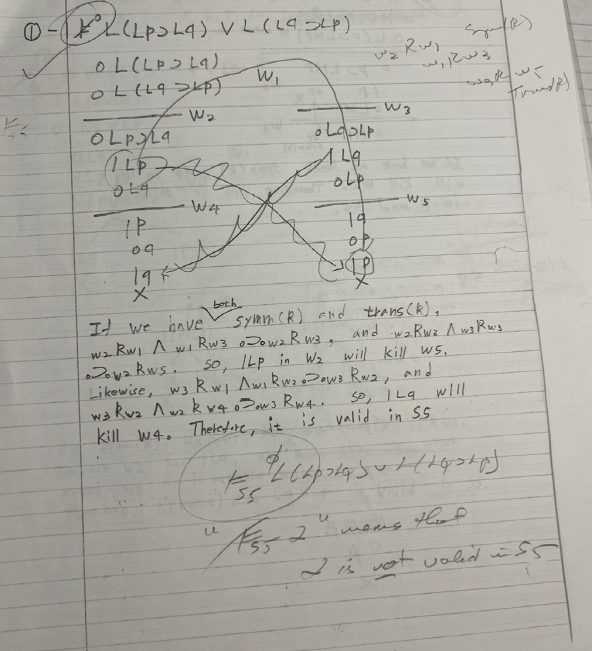 ① - ⊭ L(Lp⊃Lq) ∨ L(Lq⊃Lp)
0 L(Lp⊃Lq)
0 L(Lq⊃Lp)
W1
W2
0 Lp⊃Lq
1 Lp
0 Lq
W4
1p
0q
1q
X
W3
0 Lq⊃Lp
1 Lq
0Lp
W5
1q
0p
1p
X
w2Rw1
w1Rw3
If we have both symm(R) and trans(R),
w2Rw1 ∧ w1Rw3 ⊃ w2Rw3, and w2Rw3 ∧ w3Rw5
⊃ w2Rw5. So, 1Lp in W2 will kill W5.
Likewise, w3Rw1 ∧ w1Rw2 ⊃ w3Rw2, and
w3Rw2 ∧ w2Rw4 ⊃ w3Rw4. So, 1Lq will
kill W4. Therefore, it is valid in S5
⊨S5 L(Lp⊃Lq) ∨ L(Lq⊃Lp)
means that
is not valid in S5